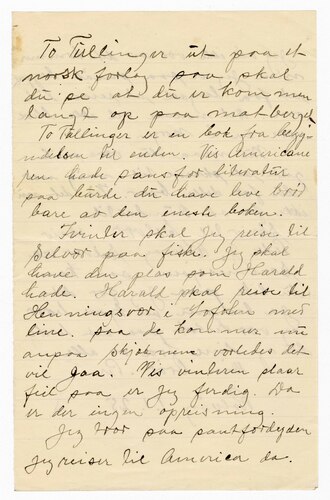 To Tullinger ut paa et
norsk forlag saa skal
du se at du er kommen
langt op paa matberget
To Tullinger er en bok fra beby
ndelsen til enden. Vis Americane
ren hade sans for literatur
saa burde du have leve brød
bare av den eneste boken.
I vinter skal jeg reise til
Selvær paa fiske. Jeg skal
have den plas som Harald
hade. Harald skal reise til
Henningsvær i Lofoten med
line. Saa de kommer nu
anpaa vorledes det
vil gaa. Vis vinteren slaar
feil saa er jeg ferdig. Da
er der ingen opreisning.
Jeg tror saa sant
jeg reiser til America da.